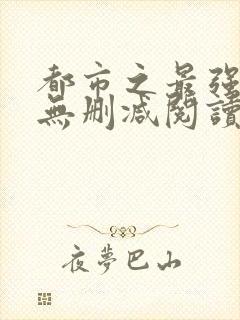 都市之最强
無删减閱讀
夜夢巴山